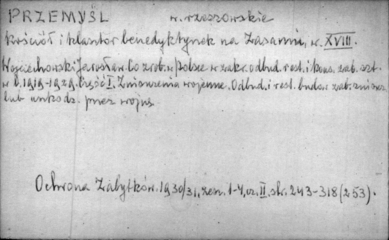 PRZEMYŚL w. rzeszowskie
Kościół i klasztor benedyktynek na Zasaniu, w. XVIII.
Wojciechowski Jarosław Co zrob. w Polsce w zakr. odbud. rest. i kons. zab. szt.
w l. 1919-1929. Część I. Zniszczenia wojenne. Odbud. i rest. budow. zab. zniszcz.
lub uszkodz. przez wojnę
Ochrona Zabytków. 1930/31, zesz. 1-4, cz. II. str. 243-318 (253).